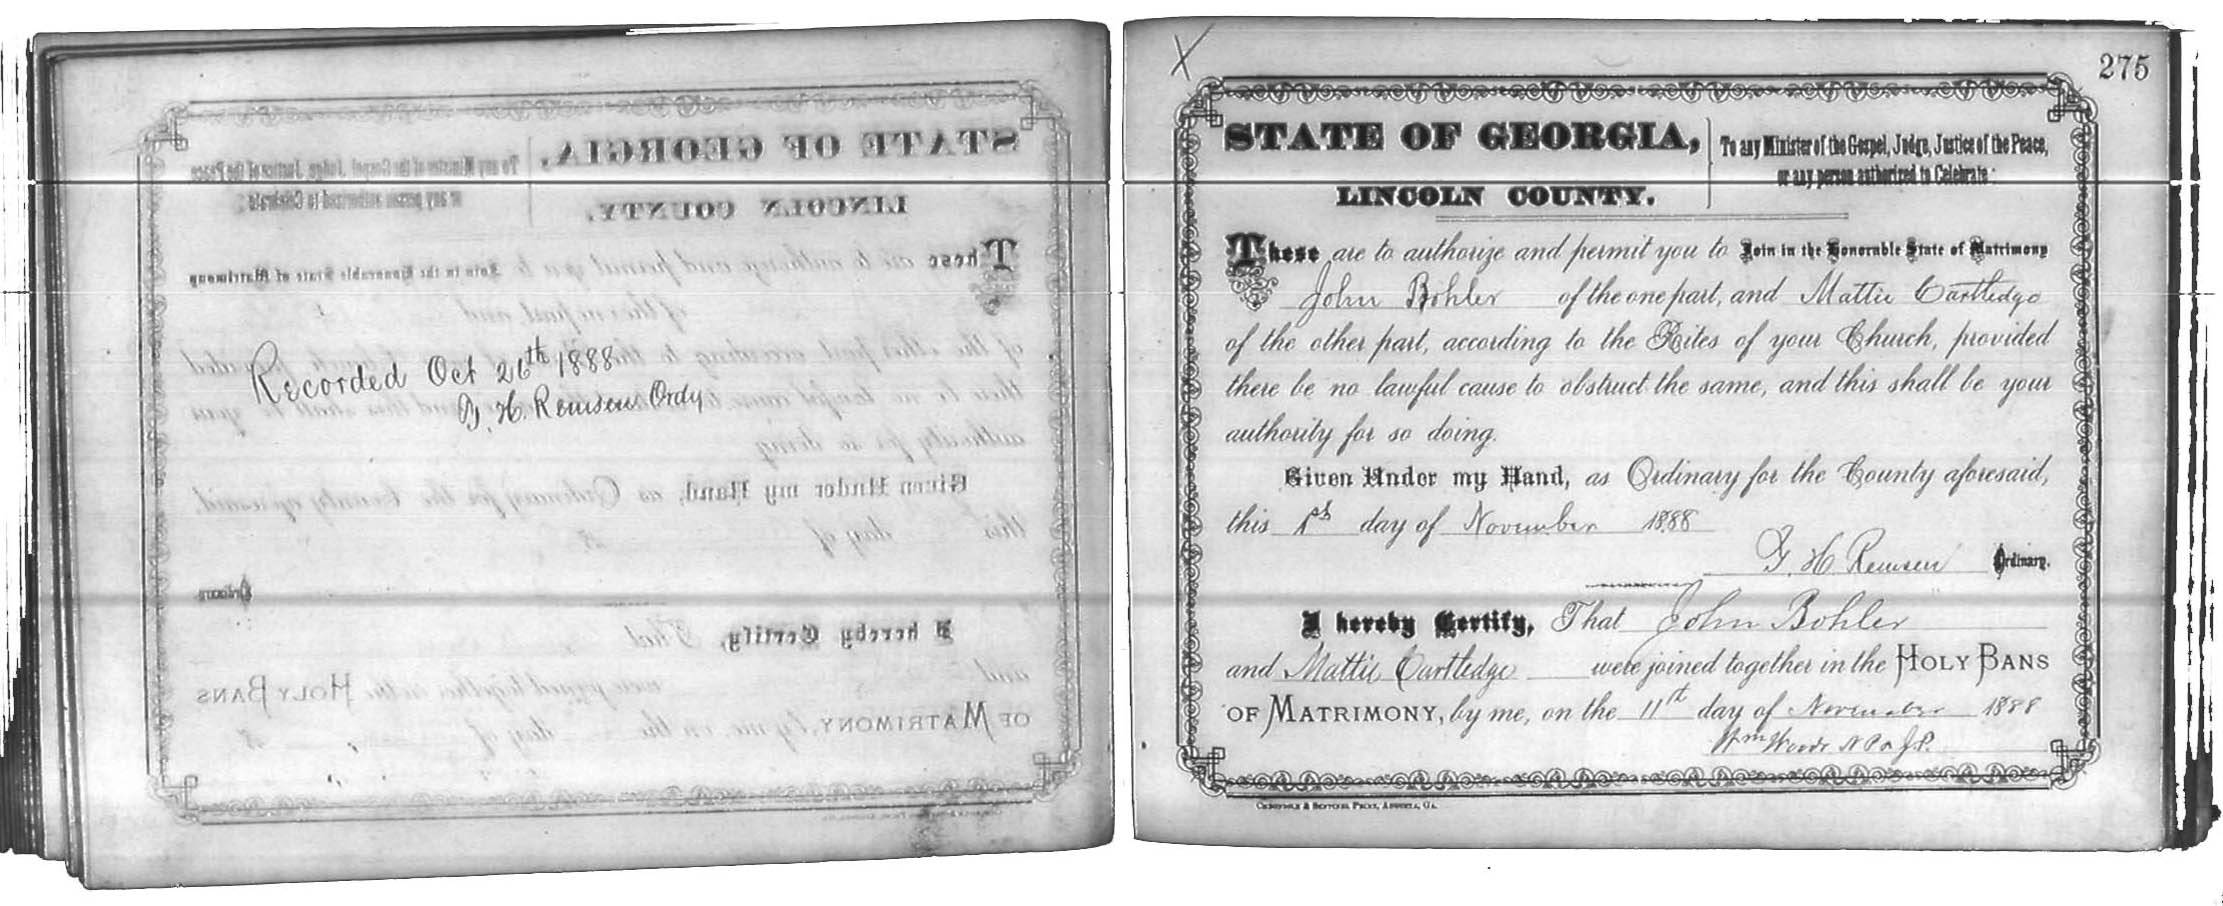 Recorded Oct 26th 1888
H. Remsen Ordy
275
X
STATE OF GEORGIA,
LINCOLN COUNTY.
To any Minister of the Gospel, Judge, Justice of the Peace,
or any person authorized to Celebrate:
These are to authorize and permit you to Join in the Honorable State of Matrimony
John Bohler of the one part, and Mattie Cartledge
of the other part, according to the Rites of your Church, provided
there be no lawful cause to obstruct the same, and this shall be your
authority for so doing.
Given Under my Hand, as Ordinary for the County aforesaid,
this 1st day of November 1888
H. Remsen Ordinary.
I hereby Certify, That John Bohler
and Mattie Cartledge were joined together in the HOLY BANS
OF MATRIMONY, by me, on the 11th day of November 1888
Wm Woods N P & J.P.
CHRONICLE & SENTINEL PRINT, AUGUSTA, GA.